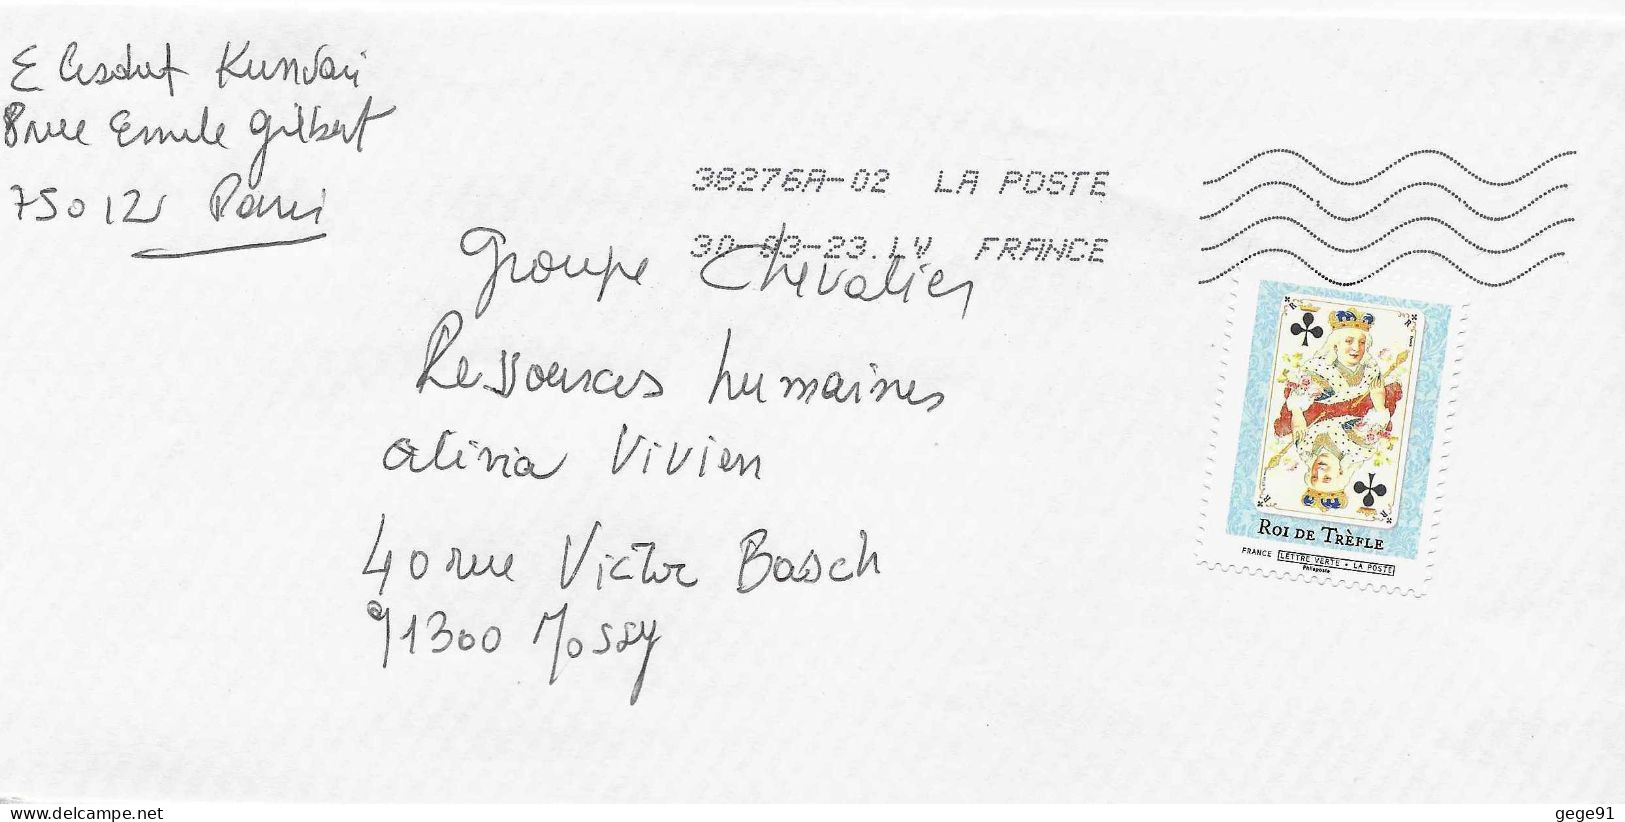 8 rue Emile Gilbert
75012 Paris
38276A-02 LA POSTE
30-03-23.LV FRANCE
Groupe Chevalier
Ressources humaines
Olivia Vivien
40 rue Victor Basch
91300 Massy
R
R
R
R
ROI DE TRÈFLE
FRANCE LETTRE VERTE • LA POSTE
Philaposte
www.delcampe.net
gege91